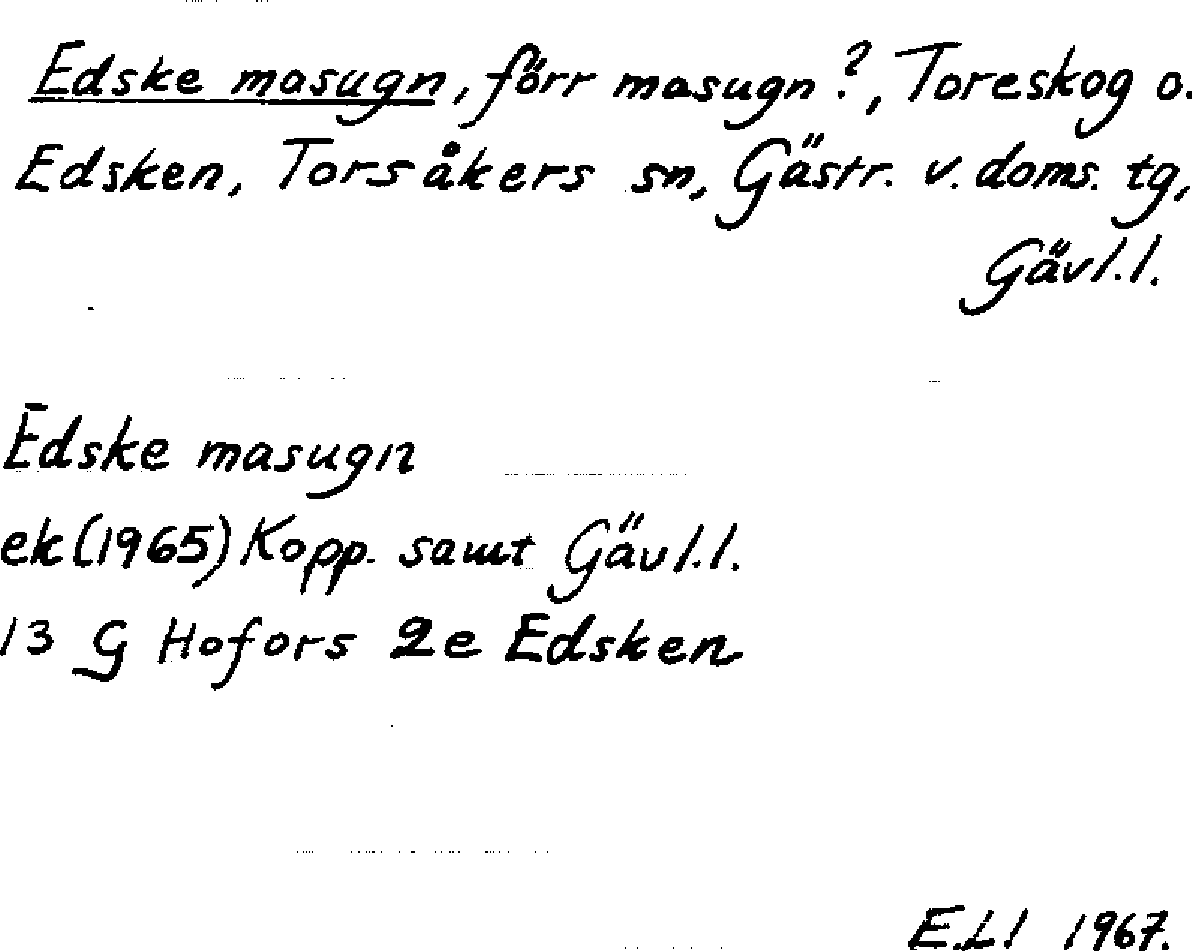 Edske masugn, förr masugn?, Toreskog o.
Edsken, Torsåkers sn, Gästr. v. doms. tg,
Gävl.l.
Edske masugn
ek (1965) Kopp. samt Gävl.l.
13 G Hofors 2e Edsken
E.L.l 1967.